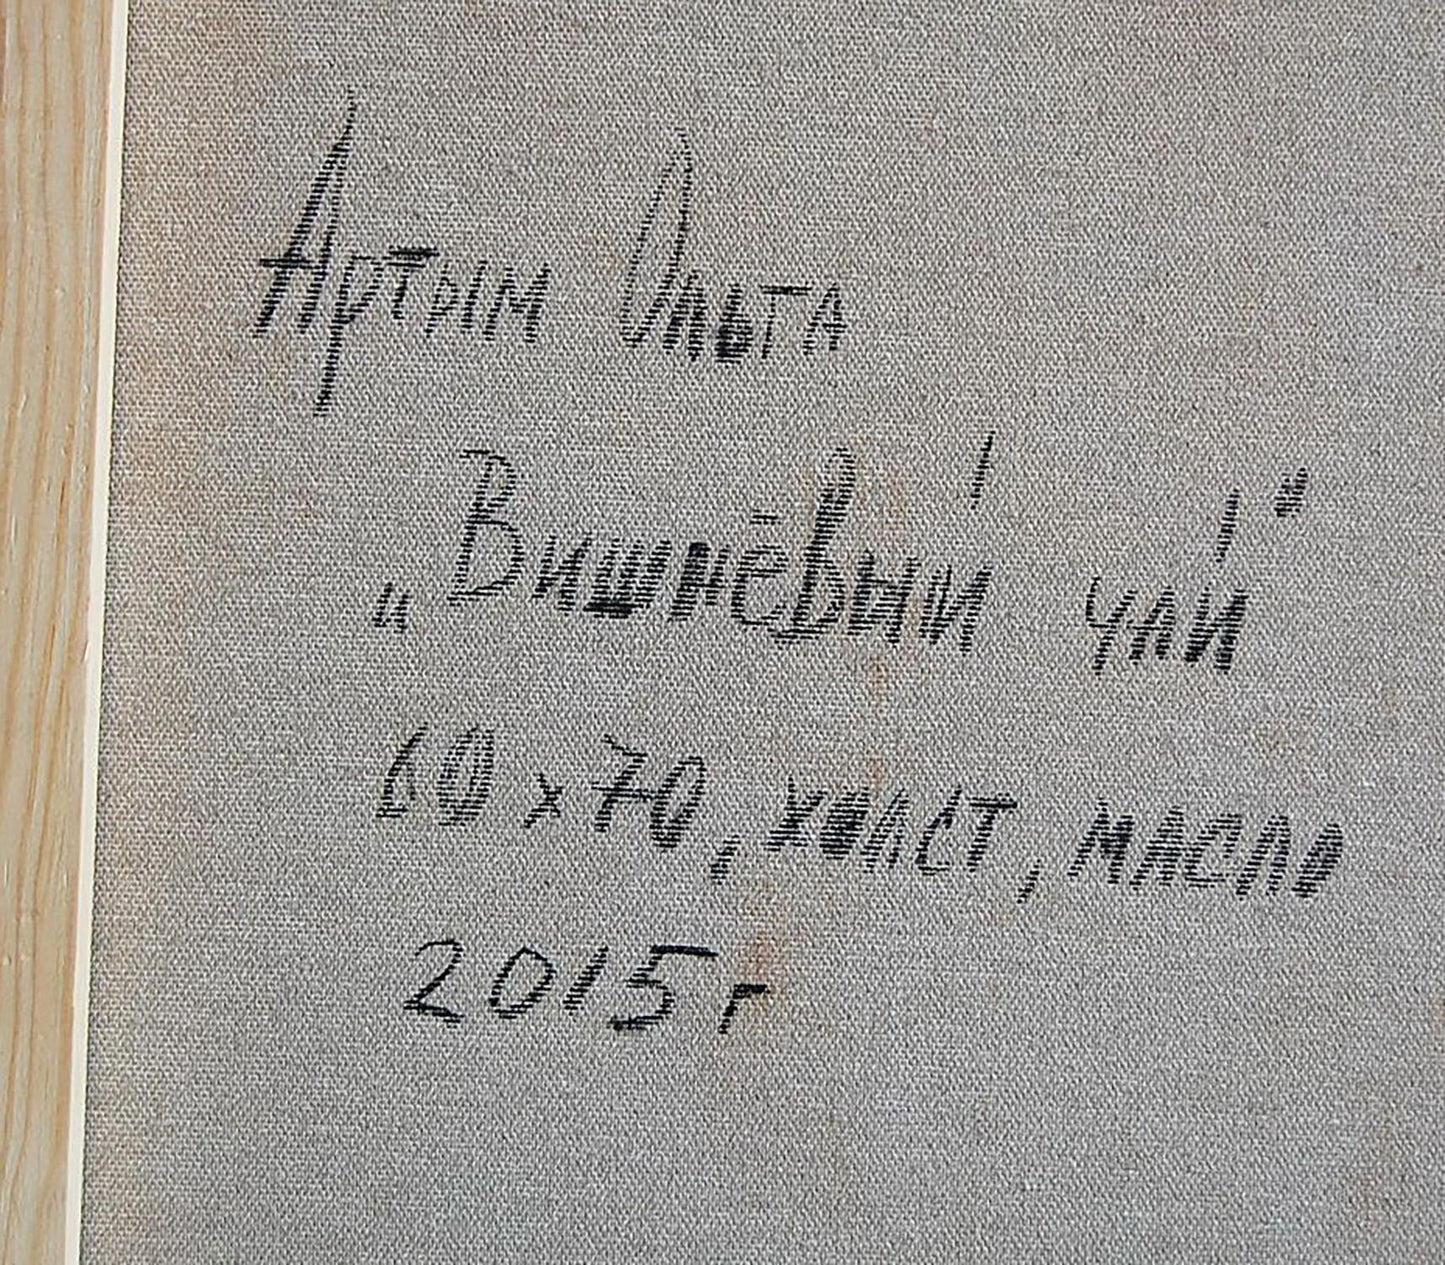 Артым Ольга
„Вишнёвый чай“
60х70, холст, масло
2015г